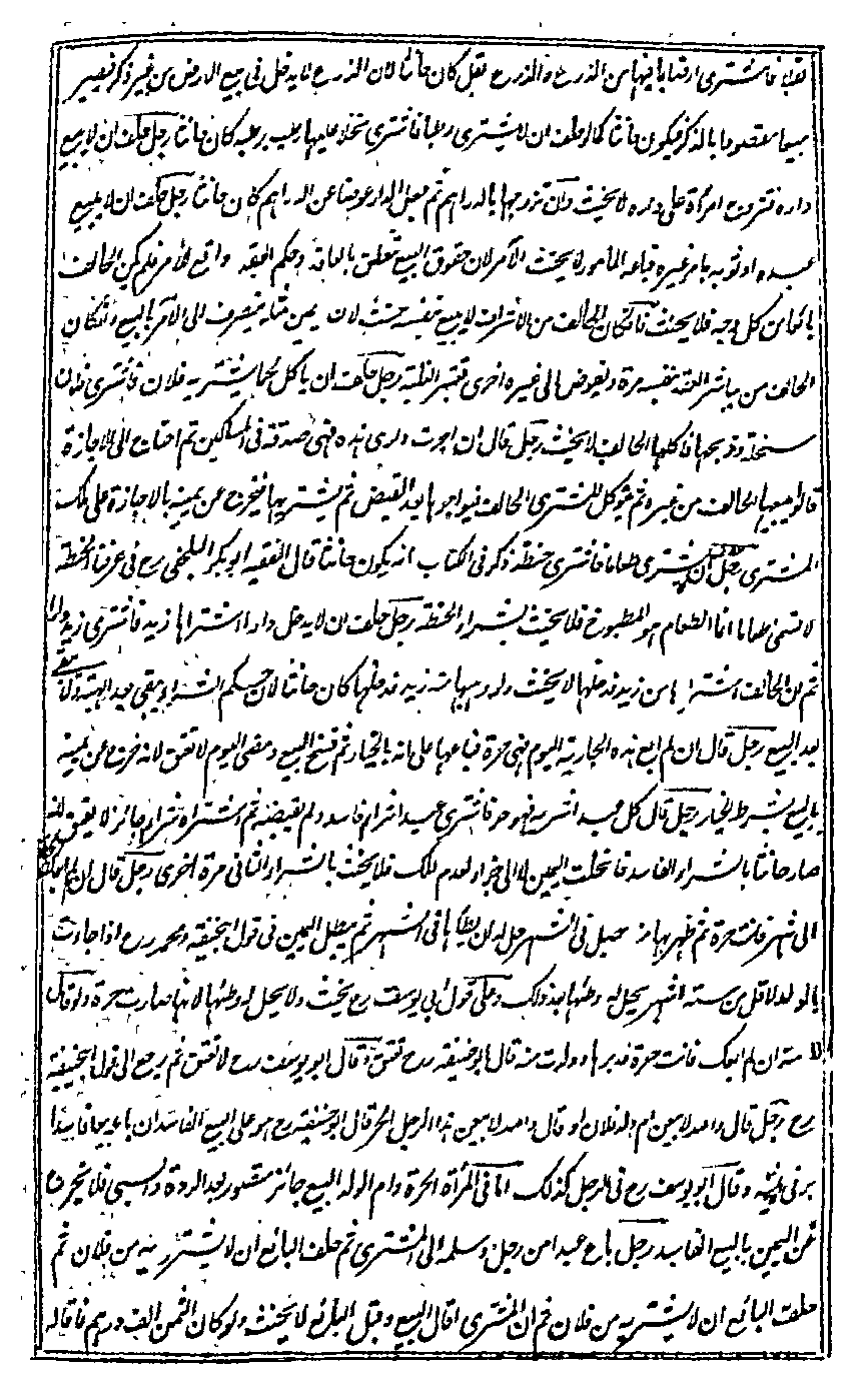 بقلا فاشترى ارضا بما فيها من الزرع والزرع بقل كان حانثا لان الزرع لا يدخل فى بيع الارض من غير ذكر فيصير
مبيعا مقصودا بالذكر فيكون حانثا كما لو حلف ان لا يشترى رطبا فاشترى نخلا عليها رطب برطبه كان حانثا رجل حلف ان لا يبيع
داره فتزوج امرأة على داره لا يحنث وان تزوجها بالدراهم ثم جعل الدار عوضا عن الدراهم كان حانثا رجل حلف ان لا يبيع
عبده او ثوبه فامر غيره فباعه المأمور لا يحنث الآمر لان حقوق البيع تتعلق بالعاقد وحكم العقد واقع للآمر فلم يكن الحالف
بائعا من كل وجه فلا يحنث فان كان الحالف من الاشراف لا يبيع بنفسه حنث لان يمين مثله ينصرف الى الآمر بالبيع وان كان
الحالف من يباشر العقد بنفسه مرة ويفوض الى غيره اخرى تعتبر الغلبة رجل حلف ان يأكل لحما يشتريه فلان فاشترى فلان
سخلة وذبحها فاكلها الحالف لا يحنث رجل قال ان اجرت دارى هذه فهى صدقة فى المساكين ثم احتاج الى الاجازة
قالوا يبيعها الحالف من غيره ثم يوكل المشترى الحالف فيواجرها بعد القبض ثم يشتريها فيخرج عن يمينه بالاجازة على ملك
المشترى رجل حلف ان لا يشترى طعاما فاشترى حنطة ذكر فى الكتاب انه يكون حانثا قال الفقيه ابو بكر البلخى رح فى عرفنا الحنطة
لا تسمى طعاما انما الطعام هو المطبوخ فلا يحنث بشراء الحنطة رجل حلف ان لا يدخل دارا اشتراها زيد فاشترى زيد دارا
ثم ان الحالف اشتراها من زيد فدخلها لا يحنث ولو وهبها منه زيد فدخلها كان حانثا لان حكم الشراء يبقى بعد الهبة ولا يبقى
بعد البيع رجل قال ان لم ابع هذه الجارية اليوم فهى حرة فباعها على انه بالخيار ثم فسخ البيع ومضى اليوم لا تعتق لانه خرج عن يمينه
بالبيع بشرط الخيار رجل قال كل عبد اشتريه فهو حر فاشترى عبدا شراء فاسدا ولم يقبضه ثم اشتراه شراء جائزا لا يعتق لانه
صار حانثا بالشراء الفاسد فانحلت اليمين لا الى جزاء لعدم الملك فلا يحنث بالشراء الثانى مرة اخرى رجل قال ان لم ابعك
الى شهر فانت حرة ثم ظهر بها حبل فى الشهر حل له ان يطأها فى الشهر ثم يبطل اليمين فى قول ابى حنيفة ومحمد رح اذا جاءت
بالولد لاقل من ستة اشهر يحل له وطئها بعد ذلك وعلى قول ابى يوسف رح يحنث ولا يحل له وطئها لانها صارت حرة ولو قال
لامته ان لم ابعك فانت حرة فدبرها او ولدت منه قال ابو حنيفة رح تعتق وقال ابو يوسف رح لا تعتق ثم رجع الى قول ابى حنيفة
رح رجل قال والله لابيعن ام ولد فلان او قال والله لابيعن هذا الرجل الحر قال ابو حنيفة رح هو على البيع الفاسد ان باعه بيعا فاسدا
بر فى يمينه وقال ابو يوسف رح فى الرجل كذلك اما فى المرأة الحرة وام الولد البيع جائز متصور بعد الردة والسبى فلا يخرج
عن اليمين بالبيع الفاسد رجل باع عبدا من رجل وسلمه الى المشترى ثم حلف البائع ان لا يشتريه من فلان ثم
حلف البائع ان لا يشتريه من فلان ثم ان المشترى اقال البيع وقبل البائع لا يحنث ولو كان الثمن الف درهم فاقاله